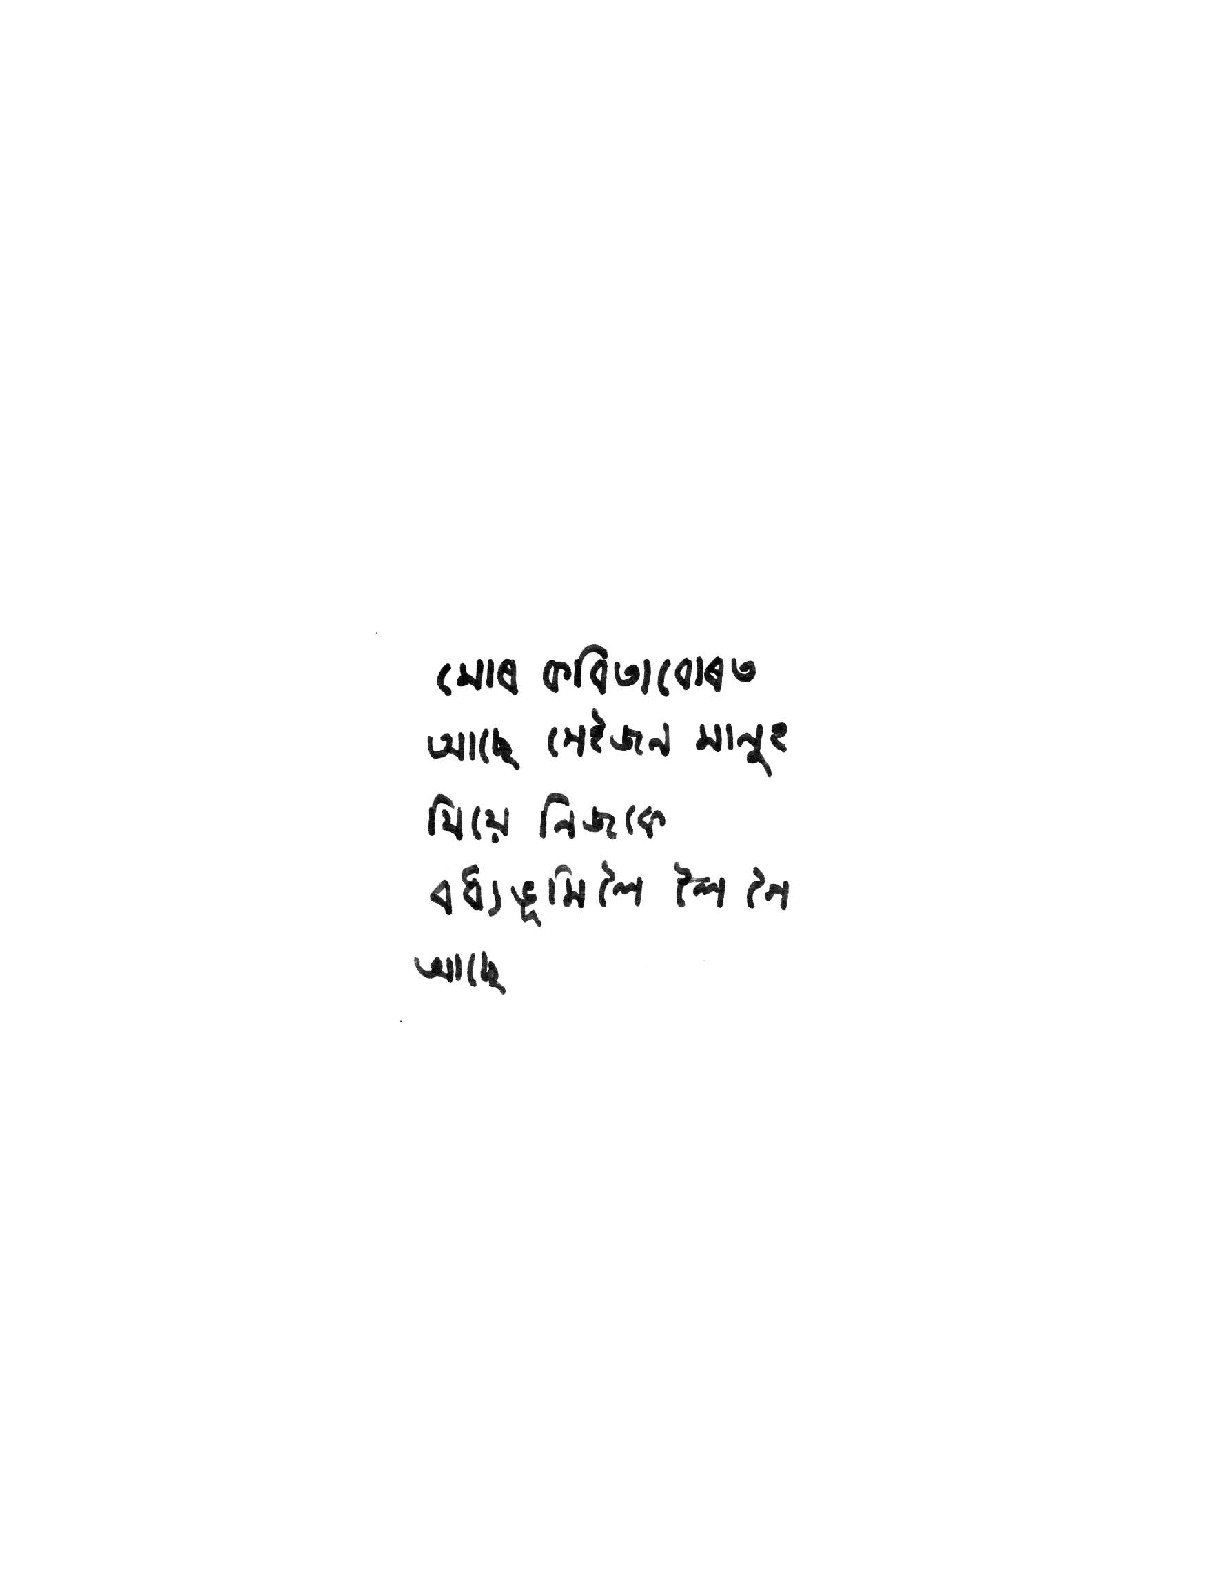 মোৰ কবিতাবোৰত
আছে সেইজন মানুহ
যিয়ে নিজকে
বধ্যভূমিলৈ লৈ গৈ
আছে